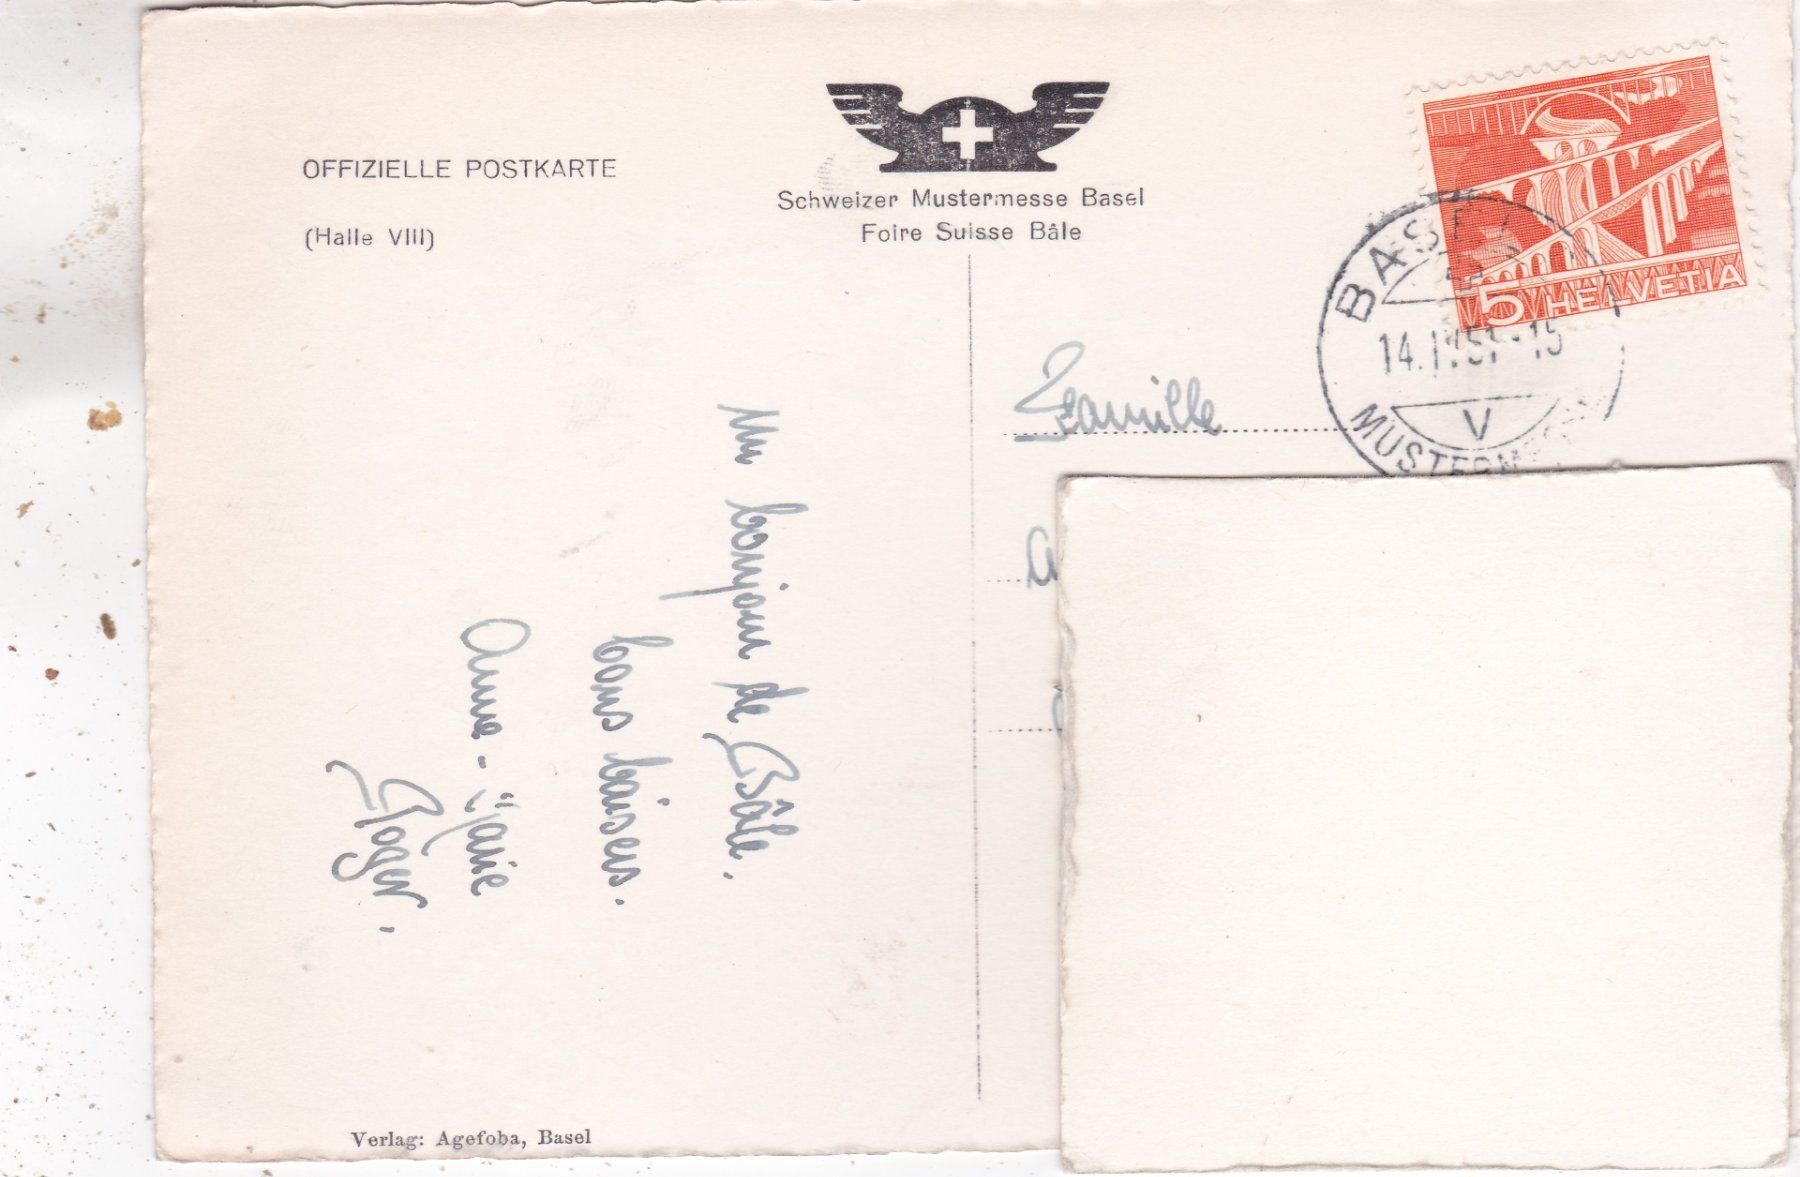 OFFIZIELLE POSTKARTE
(Halle VIII)
Schweizer Mustermesse Basel
Foire Suisse Bâle
5 HELVETIA
BASEL
14.IV.51-15
V
MUSTERMESSE
Famille
Un bonjour de Bâle.
bons baisers.
Anne-Marie
Roger.
Verlag: Agefoba, Basel